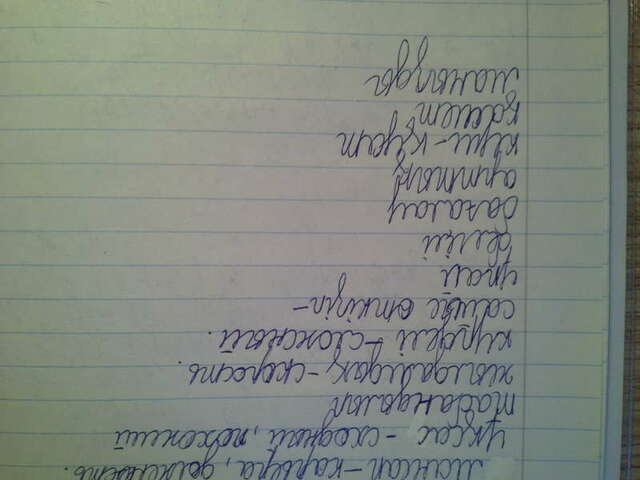 Мансап - карьера, должность.
ұқсас - сходный, похожий
табандылық
жылдамдық - скорость.
күрделі - сложный.
сайыс өткізіп -
ұпай
белгілі
бағалау
арттық
күш - қуат
қасиет
маңызды